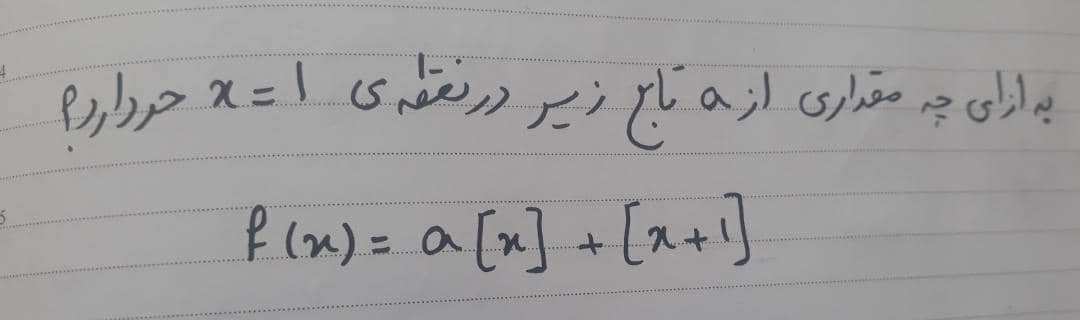 به ازای چه مقداری از a تابع زیر در نقطه ی x = 1 حد دارد؟
f(x) = a[x] + [x+1]